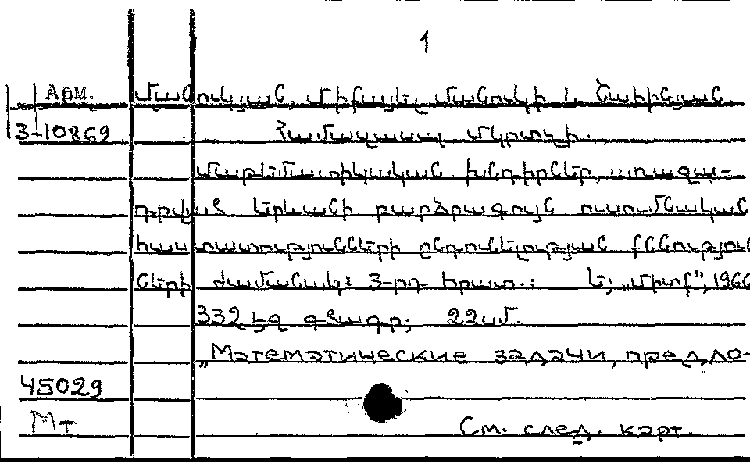 1
Арм. Մանուկյան, Միքայել Մանուկի և Շահինյան
3-10869 Համազասպ Մկրտչի.
Մաթեմատիկական խնդիրներ, առաջա-
դրված Երևանի բարձրագույն ուսումնական
հաստատությունների ընդունելության քննություն
ների ժամանակ: 3-րդ հրատ.: Ե; „Միտք", 1966
332 էջ գծագր; 22սմ.
„Математические задачи, предло-
45029
Мт См. след. карт.